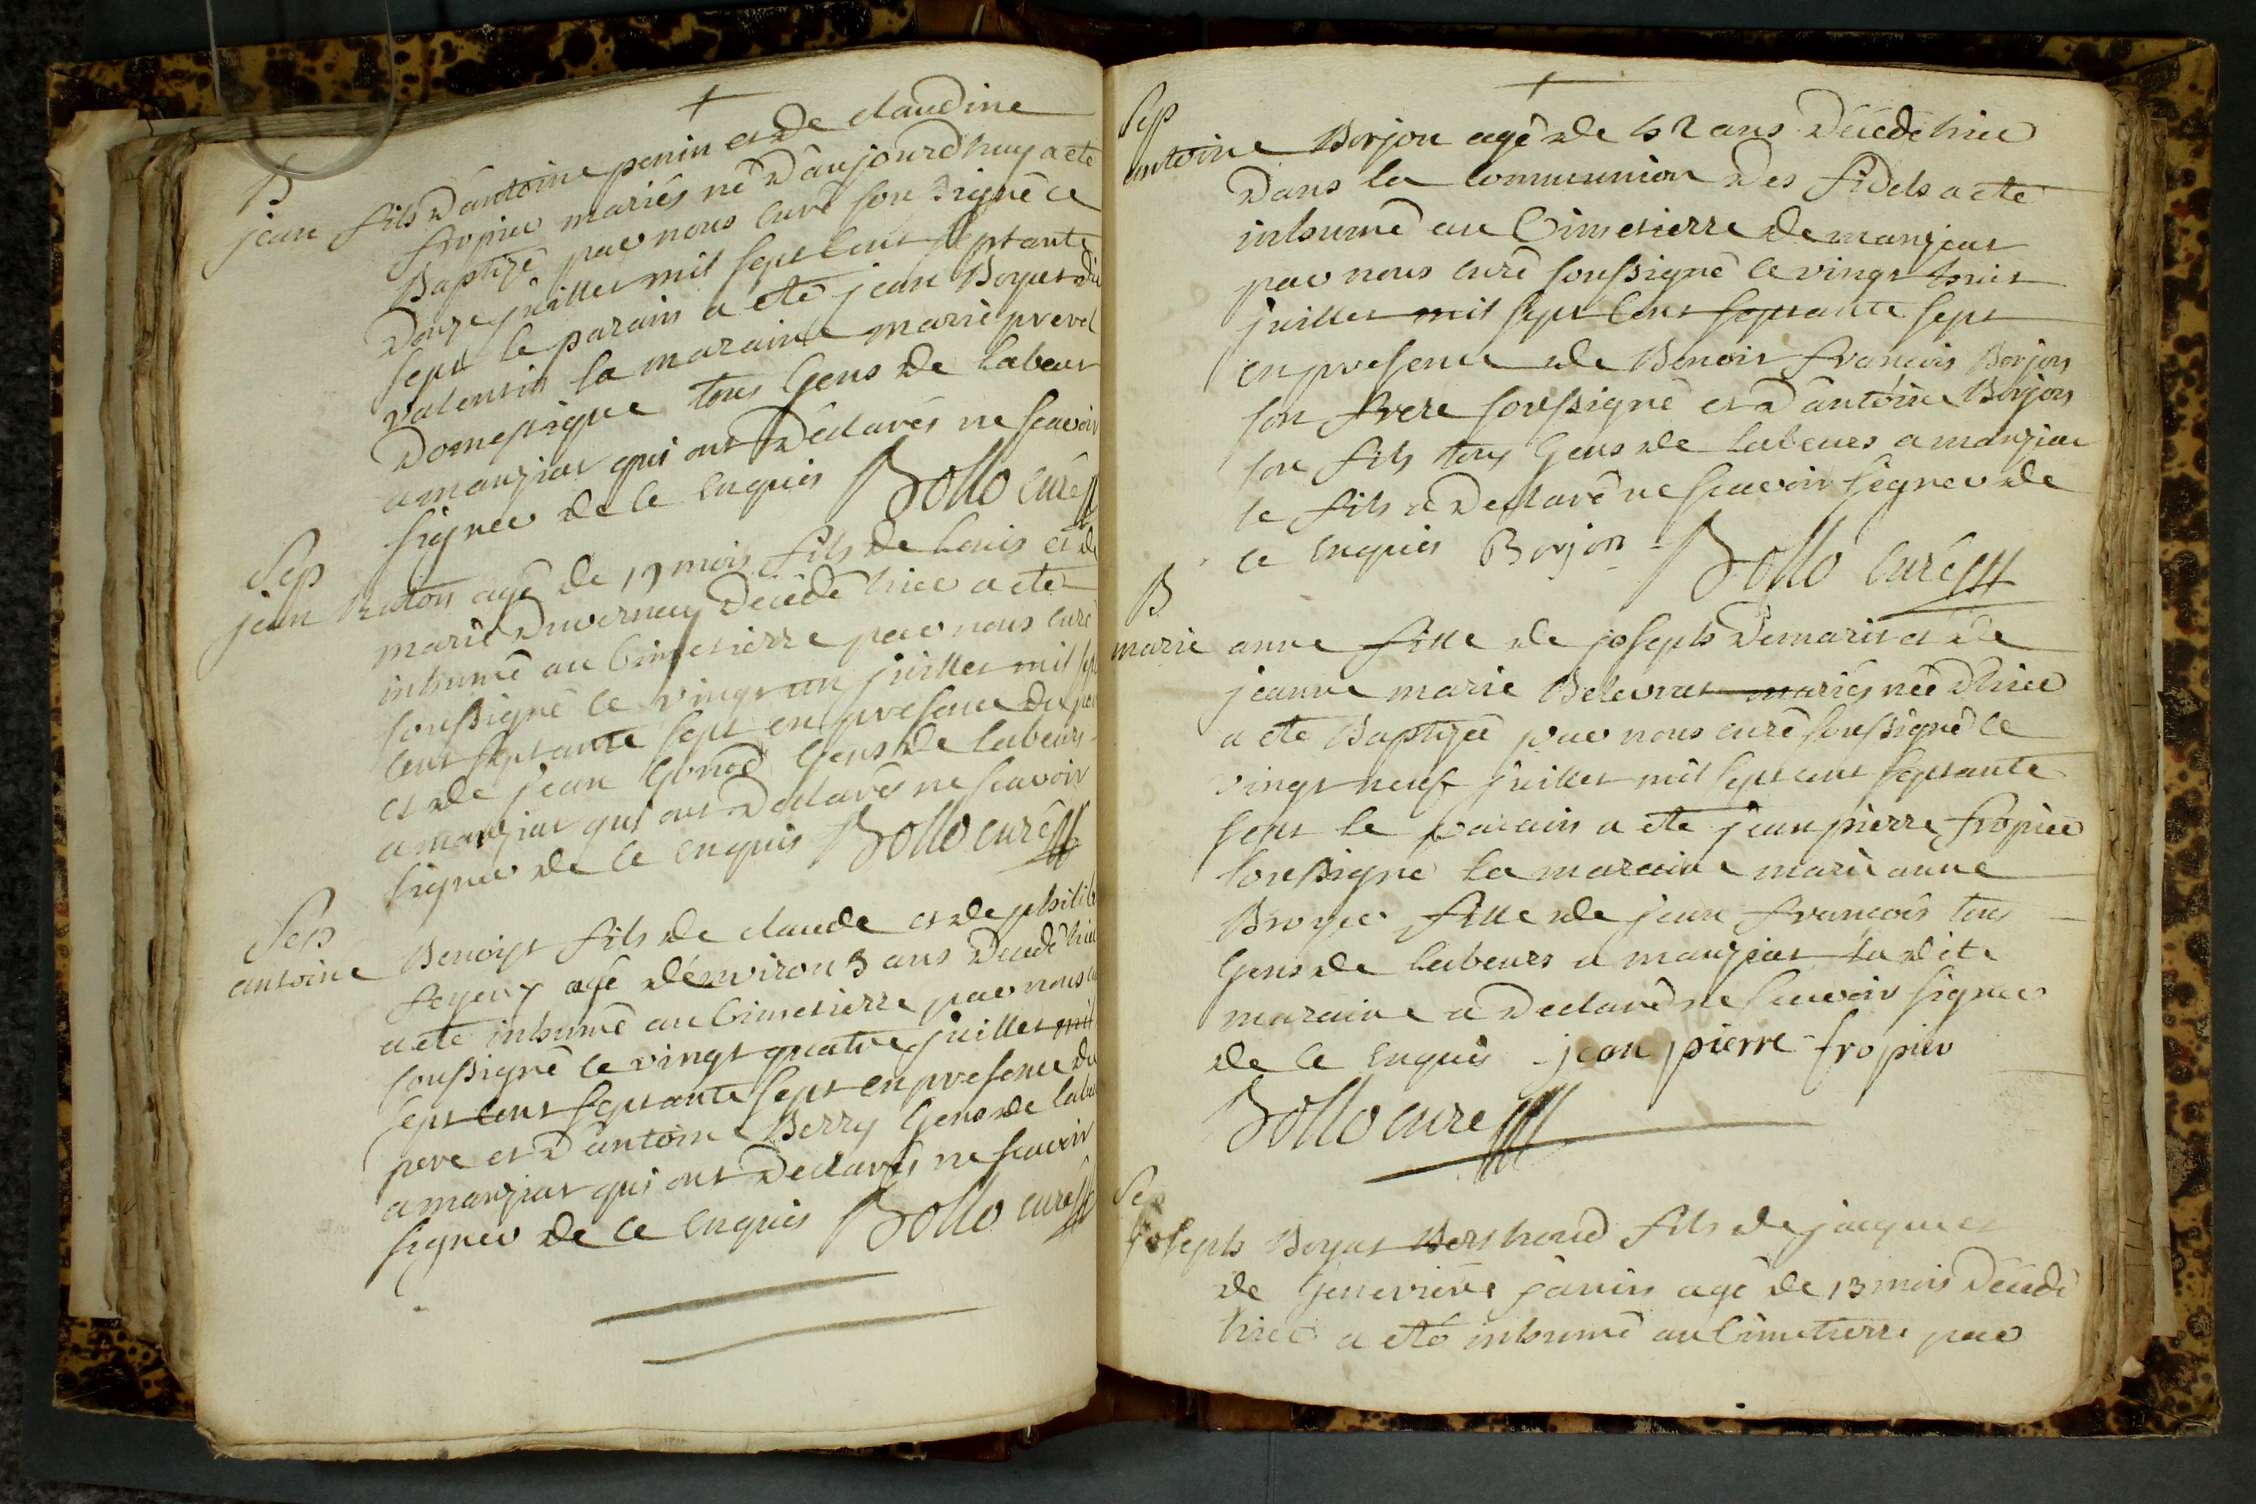 B
jean fils d'antoine penin et de claudine
fropier mariés né d'aujourd'huy a eté
Baptizé par nous curé sousigné ce
Douze juillet mil sept cent septante
sept le parain a eté jean Boyat dit
valentin la maraine marie prevel
Domestique tous Gens de labeur
a manziat qui ont déclarés ne scavoir
signer de ce enquis Bollo curé
Sep
jean agé de 19 mois fils de louis et de
marie Duvernay décédé hier a eté
inhumé au Cimetierre par nous curé
soussigné le vingt un juillet mil sept
cent septante sept en presence du pere
et de jean Gonod Gens de labeurs
a manziat qui ont déclarés ne scavoir
signer de ce enquis Bollo curé
Sep
antoine Benoist fils de claude et de philib
feyeux agé d'environ 3 ans décédé hier
a eté inhumé au Cimetierre par nous cu
soussigné le vingt quatre juillet mil
sept cent septante sept en presence du
pere et d'antoine Berry Gens de labeu
a manziat qui ont Declarés ne scavoir
signer de ce enquis Bollo curé
Sep
antoine Borjon agé de 52 ans Décédé hier
dans la communion des fidels a eté
inhumé au Cimetierre de manziat
par nous curé soussigné le vingt huit
juillet mil sept cent septante sept
en presence de Benoit francois Borjon
son frere soussigné et d'antoine Borjon
son fils tous Gens de labeurs a manziat
le fils a Declaré ne scavoir signer de
ce enquis Borjon Bollo curé
B
marie anne fille de joseph Demarit et de
jeanne marie Belevrat mariés née d'hier
a eté Baptizée par nous curé soussigné le
vingt neuf juillet mil sept cent septante
sept le parain a eté jean pierre fropier
soussigné la maraine marie anne
Broyer fille de jean francois tous
Gens de labeurs a manziat la dite
maraine a declaré ne scavoir signer
de ce enquis jean pierre fropier
Bollo curé
Sep
joseph Boyat Berthoud fils de jaques et
de Genevieve janin agé de 13 mois décédé
hier a eté inhumé au Cimetierre par